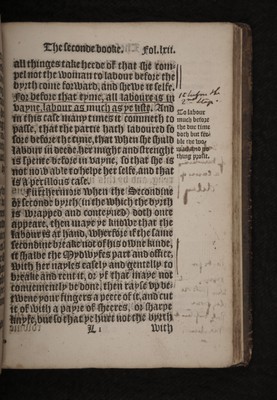 The seconde booke. Fol.lxii.
all thinges take heede of that she com
pel not the woman to labour before the
byrth come forward, and shewe it selfe.
For before that tyme, all laboure is in
vayne, labour as much as ye liste. And
in this case many times it cummeth to
passe, that the partie hath laboured so
sore before the tyme, that when she shuld
labour in deede her might and strenght
is spente before in vayne, so that she is
not now able to helpe her selfe, and that
is a perillous case.
Furthermore when the Secondine
or seconde byrth (in the which the byrth
is wrapped and conteyned) doth once
appeare, then maye ye knowe that the
labour is at hand, wherfore if the same
secondine breake not of his owne kinde,
it shalbe the Mydwyfes part and office,
with her nayles easely and gentelly to
breake and rent it, or yf that maye not
conveniently be done, then rayse up be
twene your fingers a peece of it, and cut
it of with a payre of sheeres, or sharpe
knyfe, but so that ye hurt not the byrth
L i with
To labour
much before
the due time
doth but fee
ble the wo
thing profit.